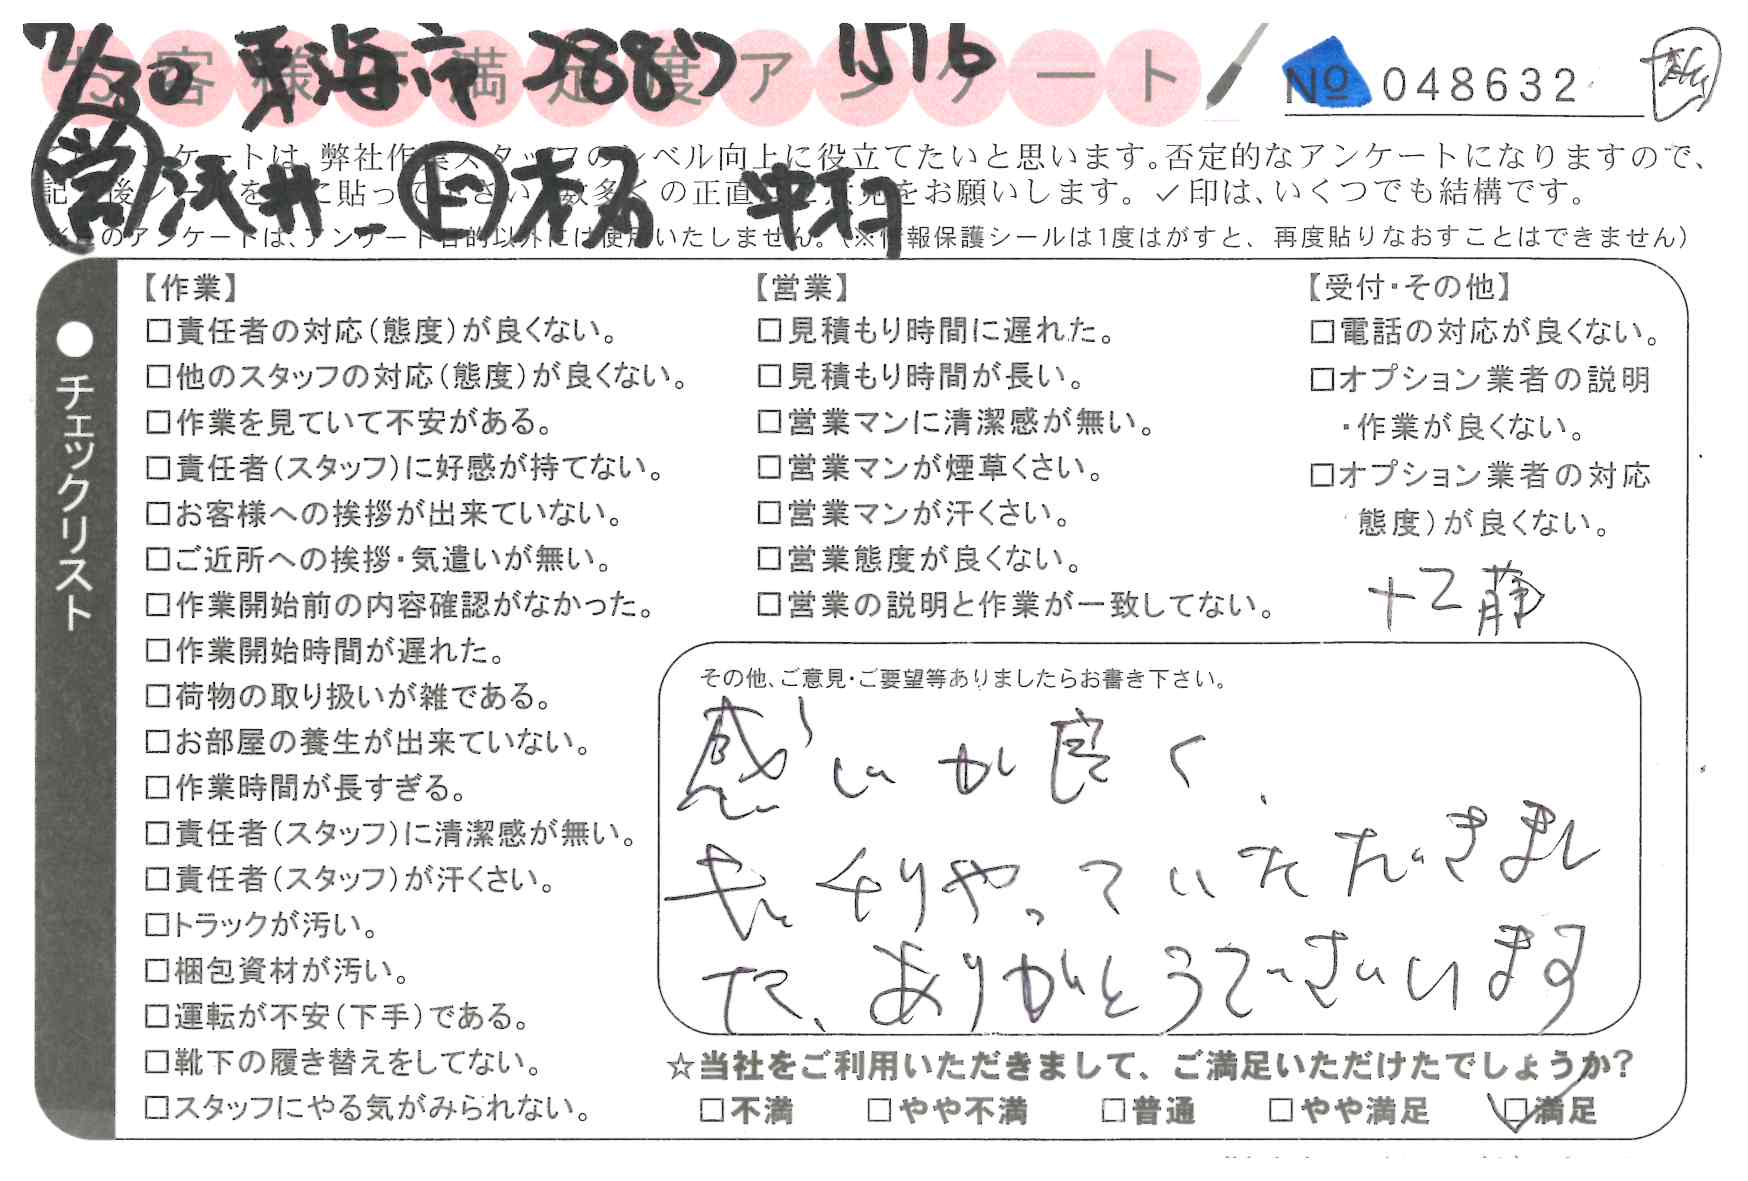 7/30 東海市 2887 1516
お客様不満足度アンケート
№ 048632
アンケートは、弊社作業スタッフのレベル向上に役立てたいと思います。否定的なアンケートになりますので、
営 浅井 上 中村
※このアンケートは、アンケート目的以外には使用いたしません。(※情報保護シールは1度はがすと、再度貼りなおすことはできません)
●チェックリスト
【作業】
□責任者の対応(態度)が良くない。
□他のスタッフの対応(態度)が良くない。
□作業を見ていて不安がある。
□責任者(スタッフ)に好感が持てない。
□お客様への挨拶が出来ていない。
□ご近所への挨拶・気遣いが無い。
□作業開始前の内容確認がなかった。
□作業開始時間が遅れた。
□荷物の取り扱いが雑である。
□お部屋の養生が出来ていない。
□作業時間が長すぎる。
□責任者(スタッフ)に清潔感が無い。
□責任者(スタッフ)が汗くさい。
□トラックが汚い。
□梱包資材が汚い。
□運転が不安(下手)である。
□靴下の履き替えをしてない。
□スタッフにやる気がみられない。
【営業】
□見積もり時間に遅れた。
□見積もり時間が長い。
□営業マンに清潔感が無い。
□営業マンが煙草くさい。
□営業マンが汗くさい。
□営業態度が良くない。
□営業の説明と作業が一致してない。
【受付・その他】
□電話の対応が良くない。
□オプション業者の説明
・作業が良くない。
□オプション業者の対応
態度)が良くない。
その他、ご意見・ご要望等ありましたらお書き下さい。
感じが良く、
やっていただきまし
た、ありがとうございます
☆当社をご利用いただきまして、ご満足いただけたでしょうか?
□不満 □やや不満 □普通 □やや満足 ☑満足